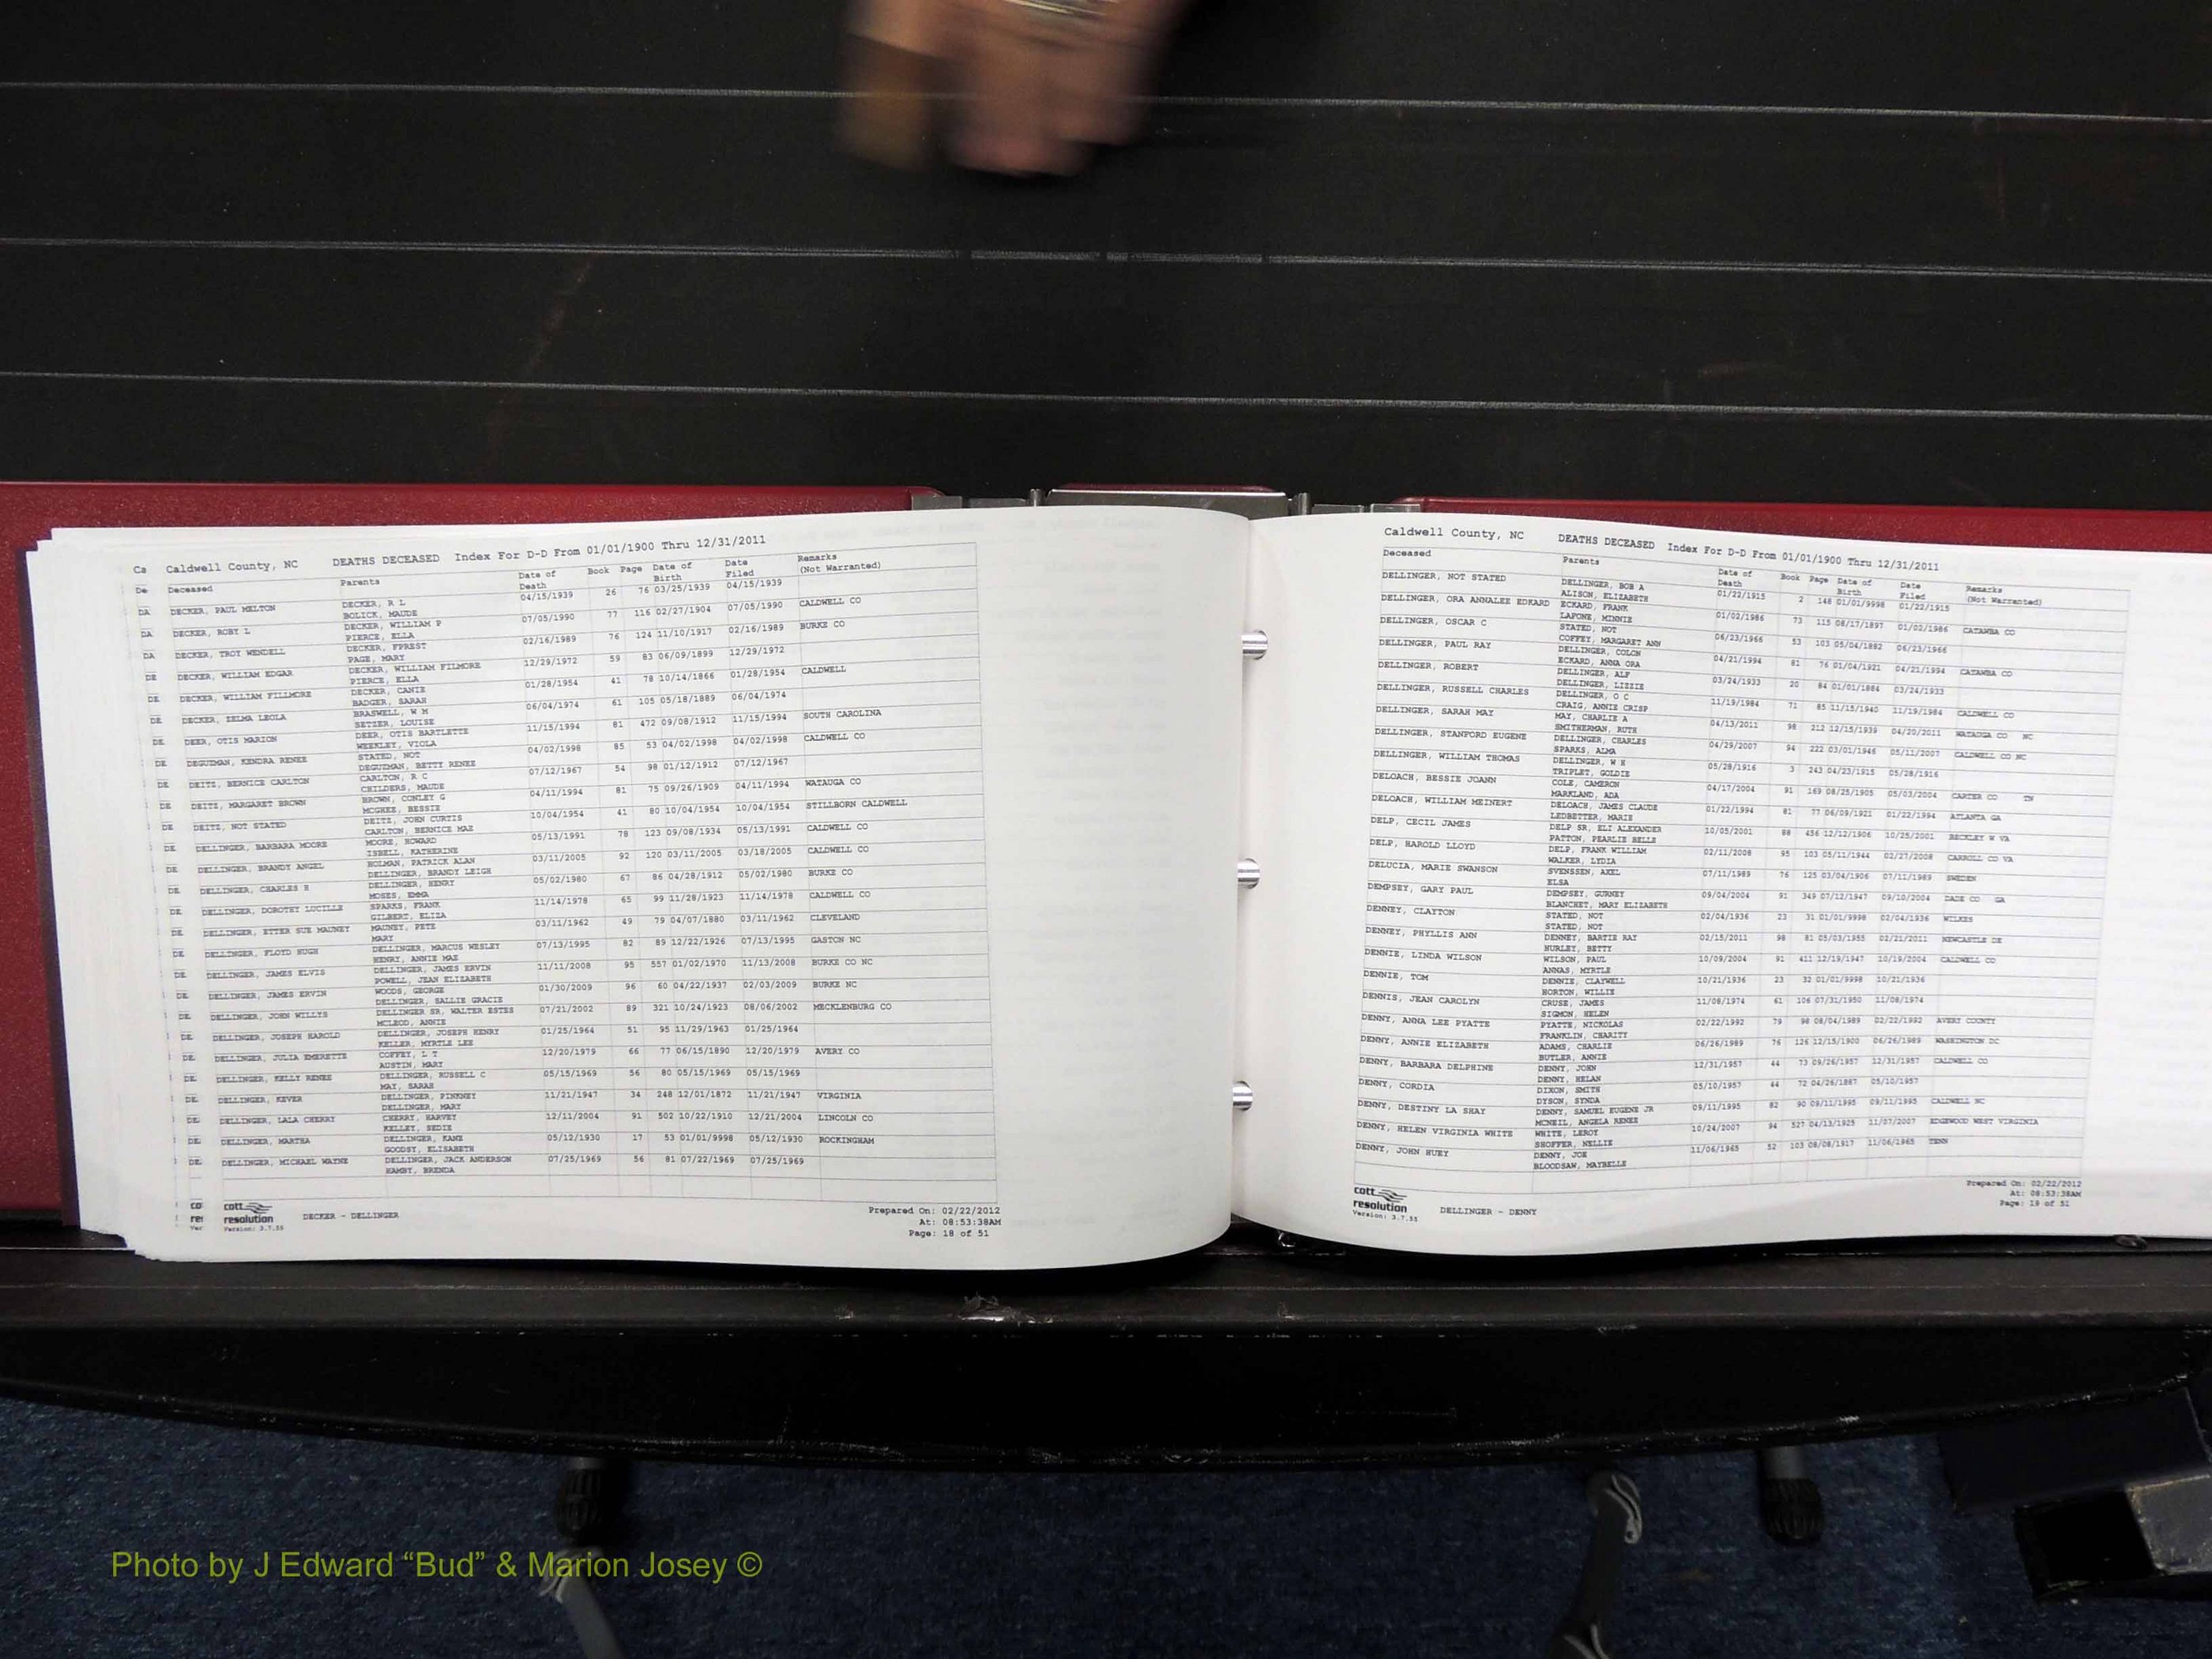 Ca Caldwell County, NC DEATHS DECEASED Index For D-D From 01/01/1900 Thru 12/31/2011
De Deceased Parents Date of Death Book Page Date of Birth Date Filed Remarks (Not Warranted)
DA DECKER, PAUL MELTON DECKER, R L 04/15/1939 26 76 03/25/1939 04/15/1939
BOLICK, MAUDE
DA DECKER, ROBY L DECKER, WILLIAM P 07/05/1990 77 116 02/27/1904 07/05/1990 CALDWELL CO
PIERCE, ELLA
DA DECKER, TROY WENDELL DECKER, FPREST 02/16/1989 76 124 11/10/1917 02/16/1989 BURKE CO
PAGE, MARY
DE DECKER, WILLIAM EDGAR DECKER, WILLIAM FILMORE 12/29/1972 59 83 06/09/1899 12/29/1972
PIERCE, ELLA
DE DECKER, WILLIAM FILLMORE DECKER, CANIE 01/28/1954 41 78 10/14/1866 01/28/1954 CALDWELL
BADGER, SARAH
DE DECKER, ZELMA LEOLA BRASWELL, W M 06/04/1974 61 105 05/18/1889 06/04/1974
SETZER, LOUISE
DE DEER, OTIS MARION DEER, OTIS BARTLETTE 11/15/1994 81 472 09/08/1912 11/15/1994 SOUTH CAROLINA
WEEKLEY, VIOLA
DE DEGUZMAN, KENDRA RENEE STATED, NOT 04/02/1998 85 53 04/02/1998 04/02/1998 CALDWELL CO
DEGUZMAN, BETTY RENEE
DE DEITZ, BERNICE CARLTON CARLTON, R C 07/12/1967 54 98 01/12/1912 07/12/1967
CHILDERS, MAUDE
DE DEITZ, MARGARET BROWN BROWN, CONLEY G 04/11/1994 81 75 09/26/1909 04/11/1994 WATAUGA CO
MCGHEE, BESSIE
DE DEITZ, NOT STATED DEITZ, JOHN CURTIS 10/04/1954 41 80 10/04/1954 10/04/1954 STILLBORN CALDWELL
CARLTON, BERNICE MAE
DE DELLINGER, BARBARA MOORE MOORE, HOWARD 05/13/1991 78 123 09/08/1934 05/13/1991 CALDWELL CO
ISBELL, KATHERINE
DE DELLINGER, BRANDY ANGEL HOLMAN, PATRICK ALAN 03/11/2005 92 120 03/11/2005 03/18/2005 CALDWELL CO
DELLINGER, BRANDY LEIGH
DE DELLINGER, CHARLES H DELLINGER, HENRY 05/02/1980 67 86 04/28/1912 05/02/1980 BURKE CO
MOSES, EMMA
DE DELLINGER, DOROTHY LUCILLE SPARKS, FRANK 11/14/1978 65 99 11/28/1923 11/14/1978 CALDWELL CO
GILBERT, ELIZA
DE DELLINGER, ETTER SUE MAUNEY MAUNEY, PETE 03/11/1962 49 79 04/07/1880 03/11/1962 CLEVELAND
MARY
DE DELLINGER, FLOYD HUGH DELLINGER, MARCUS WESLEY 07/13/1995 82 89 12/22/1926 07/13/1995 GASTON NC
HENRY, ANNIE MAE
DE DELLINGER, JAMES ELVIS DELLINGER, JAMES ERVIN 11/11/2008 95 557 01/02/1970 11/13/2008 BURKE CO NC
POWELL, JEAN ELIZABETH
DE DELLINGER, JAMES ERVIN WOODS, GEORGE 01/30/2009 96 60 04/22/1937 02/03/2009 BURKE NC
DELLINGER, SALLIE GRACIE
DE DELLINGER, JOHN WILLYS DELLINGER SR, WALTER ESTES 07/21/2002 89 321 10/24/1923 08/06/2002 MECKLENBURG CO
MCLEOD, ANNIE
DE DELLINGER, JOSEPH HAROLD DELLINGER, JOSEPH HENRY 01/25/1964 51 95 11/29/1963 01/25/1964
KELLER, MYRTLE LEE
DE DELLINGER, JULIA EMERETTE COFFEY, L T 12/20/1979 66 77 06/15/1890 12/20/1979 AVERY CO
AUSTIN, MARY
DE DELLINGER, KELLY RENEE DELLINGER, RUSSELL C 05/15/1969 56 80 05/15/1969 05/15/1969
MAY, SARAH
DE DELLINGER, KEVER DELLINGER, PINKNEY 11/21/1947 34 248 12/01/1872 11/21/1947 VIRGINIA
DELLINGER, MARY
DE DELLINGER, LALA CHERRY CHERRY, HARVEY 12/11/2004 91 502 10/22/1910 12/21/2004 LINCOLN CO
KELLEY, SEDIE
DE DELLINGER, MARTHA DELLINGER, KANE 05/12/1930 17 53 01/01/9998 05/12/1930 ROCKINGHAM
GOODSY, ELISABETH
DE DELLINGER, MICHAEL WAYNE DELLINGER, JACK ANDERSON 07/25/1969 56 81 07/22/1969 07/25/1969
HAMBY, BRENDA
co cott
re resolution DECKER - DELLINGER Prepared On: 02/22/2012
Ver Version: 3.7.55 At: 08:53:38AM
Page: 18 of 51
Caldwell County, NC DEATHS DECEASED Index For D-D From 01/01/1900 Thru 12/31/2011
Deceased Parents Date of Death Book Page Date of Birth Date Filed Remarks (Not Warranted)
DELLINGER, NOT STATED DELLINGER, BOB A 01/22/1915 2 148 01/01/9998 01/22/1915
ALISON, ELIZABETH
DELLINGER, ORA ANNALEE EDKARD ECKARD, FRANK 01/02/1986 73 115 08/17/1897 01/02/1986 CATAWBA CO
LAFONE, MINNIE
DELLINGER, OSCAR C STATED, NOT 06/23/1966 53 103 05/04/1882 06/23/1966
COFFEY, MARGARET ANN
DELLINGER, PAUL RAY DELLINGER, COLON 04/21/1994 81 76 01/04/1921 04/21/1994 CATAWBA CO
ECKARD, ANNA ORA
DELLINGER, ROBERT DELLINGER, ALF 03/24/1933 20 84 01/01/1884 03/24/1933
DELLINGER, LIZZIE
DELLINGER, RUSSELL CHARLES DELLINGER, O C 11/19/1984 71 85 11/15/1940 11/19/1984 CALDWELL CO
CRAIG, ANNIE CRISP
DELLINGER, SARAH MAY MAY, CHARLIE A 04/13/2011 98 212 12/15/1939 04/20/2011 WATAUGA CO NC
SMITHERMAN, RUTH
DELLINGER, STANFORD EUGENE DELLINGER, CHARLES 04/29/2007 94 222 03/01/1946 05/11/2007 CALDWELL CO NC
SPARKS, ALMA
DELLINGER, WILLIAM THOMAS DELLINGER, W H 05/28/1916 3 243 04/23/1915 05/28/1916
TRIPLET, GOLDIE
DELOACH, BESSIE JOANN COLE, CAMERON 04/17/2004 91 169 08/25/1905 05/03/2004 CARTER CO TN
MARKLAND, ADA
DELOACH, WILLIAM MEINERT DELOACH, JAMES CLAUDE 01/22/1994 81 77 06/09/1921 01/22/1994 ATLANTA GA
LEDBETTER, MARIE
DELP, CECIL JAMES DELP SR, ELI ALEXANDER 10/05/2001 88 456 12/12/1906 10/25/2001 BECKLEY W VA
PATTON, PEARLIE BELLE
DELP, HAROLD LLOYD DELP, FRANK WILLIAM 02/11/2008 95 103 05/11/1944 02/27/2008 CARROLL CO VA
WALKER, LYDIA
DELUCIA, MARIE SWANSON SVENSSEN, AXEL 07/11/1989 76 125 03/04/1906 07/11/1989 SWEDEN
ELSA
DEMPSEY, GARY PAUL DEMPSEY, GURNEY 09/04/2004 91 349 07/12/1947 09/10/2004 DADE CO GA
BLANCHET, MARY ELIZABETH
DENNEY, CLAYTON STATED, NOT 02/04/1936 23 31 01/01/9998 02/04/1936 WILKES
STATED, NOT
DENNEY, PHYLLIS ANN DENNEY, BARTIE RAY 02/15/2011 98 81 05/03/1955 02/21/2011 NEWCASTLE DE
HURLEY, BETTY
DENNIE, LINDA WILSON WILSON, PAUL 10/09/2004 91 411 12/19/1947 10/19/2004 CALDWELL CO
ANNAS, MYRTLE
DENNIE, TOM DENNIE, CLAYWELL 10/21/1936 23 32 01/01/9998 10/21/1936
HORTON, WILLIE
DENNIS, JEAN CAROLYN CRUSE, JAMES 11/08/1974 61 106 07/31/1950 11/08/1974
SIGMON, HELEN
DENNY, ANNA LEE PYATTE PYATTE, NICKOLAS 02/22/1992 79 98 08/04/1989 02/22/1992 AVERY COUNTY
FRANKLIN, CHARITY
DENNY, ANNIE ELIZABETH ADAMS, CHARLIE 06/26/1989 76 126 12/15/1900 06/26/1989 WASHINGTON DC
BUTLER, ANNIE
DENNY, BARBARA DELPHINE DENNY, JOHN 12/31/1957 44 73 09/26/1957 12/31/1957 CALDWELL CO
DENNY, HELAN
DENNY, CORDIA DIXON, SMITH 05/10/1957 44 72 04/26/1887 05/10/1957
DYSON, SYNDA
DENNY, DESTINY LA SHAY DENNY, SAMUEL EUGENE JR 09/11/1995 82 90 09/11/1995 09/11/1995 CALDWELL NC
MCNEIL, ANGELA RENEE
DENNY, HELEN VIRGINIA WHITE WHITE, LEROY 10/24/2007 94 527 04/13/1925 11/07/2007 EDGEWOOD WEST VIRGINIA
SHOFFER, NELLIE
DENNY, JOHN HUEY DENNY, JOE 11/06/1965 52 103 08/08/1917 11/06/1965 TENN
BLOODSAW, MAYBELLE
cott
resolution DELLINGER - DENNY Prepared On: 02/22/2012
Version: 3.7.55 At: 08:53:38AM
Page: 19 of 51
Photo by J Edward “Bud” & Marion Josey ©